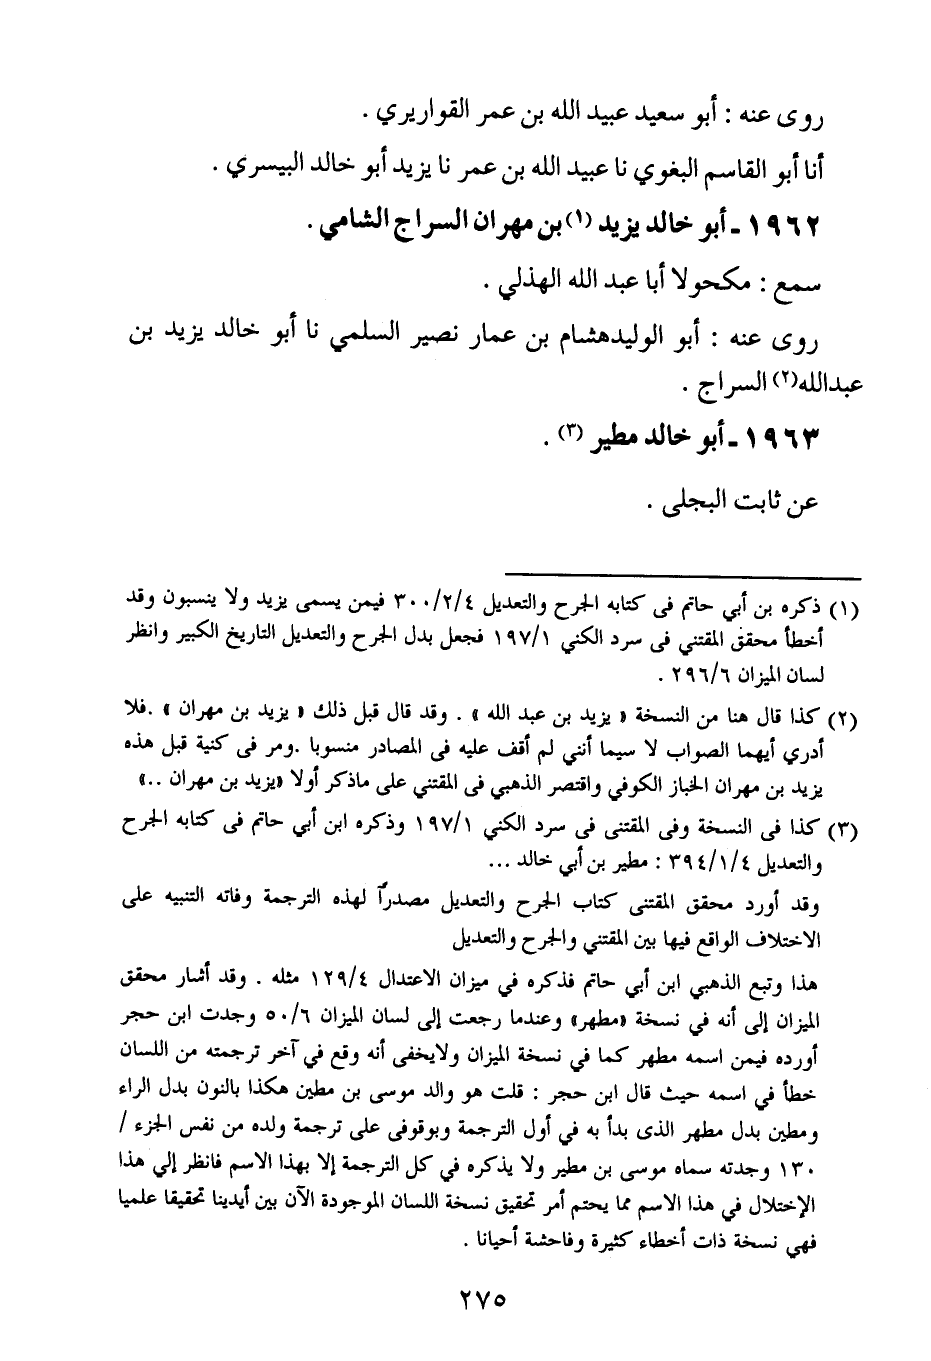 روى عنه : أبو سعيد عبيد الله بن عمر القواريري .
أنا أبو القاسم البغوي نا عبيد الله بن عمر نا يزيد أبو خالد البيسري .
١٩٦٢ ـ أبو خالد يزيد (١) بن مهران السراج الشامي .
سمع : مكحولا أبا عبد الله الهذلي .
روى عنه : أبو الوليدهشام بن عمار نصير السلمي نا أبو خالد يزيد بن
عبدالله(٢) السراج .
١٩٦٣ ـ أبو خالد مطير (٣) .
عن ثابت البجلى .
(١) ذكره بن أبي حاتم فى كتابه الجرح والتعديل ٣٠٠/٢/٤ فيمن يسمى يزيد ولا ينسبون وقد
أخطأ محقق المقتني فى سرد الكني ١٩٧/١ فجعل بدل الجرح والتعديل التاريخ الكبير وانظر
لسان الميزان ٢٩٦/٦ .
(٢) كذا قال هنا من النسخة « يزيد بن عبد الله » . وقد قال قبل ذلك « يزيد بن مهران » .فلا
أدري أيهما الصواب لا سيما أنني لم أقف عليه فى المصادر منسوبا .ومر فى كنية قبل هذه
يزيد بن مهران الخباز الكوفي واقتصر الذهبي فى المقتني على ماذكر أولا «يزيد بن مهران ..»
(٣) كذا فى النسخة وفى المقتنى فى سرد الكني ١٩٧/١ وذكره ابن أبي حاتم فى كتابه الجرح
والتعديل ٣٩٤/١/٤ : مطير بن أبي خالد ...
وقد أورد محقق المقتنى كتاب الجرح والتعديل مصدرآً لهذه الترجمة وفاته التنبيه على
الاختلاف الواقع فيها بين المقتني والجرح والتعديل
هذا وتبع الذهبي ابن أبي حاتم فذكره في ميزان الاعتدال ١٢٩/٤ مثله . وقد أشار محقق
الميزان إلى أنه في نسخة «مطهر» وعندما رجعت إلى لسان الميزان ٥٠/٦ وجدت ابن حجر
أورده فيمن اسمه مطهر كما في نسخة الميزان ولايخفى أنه وقع في آخر ترجمته من اللسان
خطأ في اسمه حيث قال ابن حجر : قلت هو والد موسى بن مطين هكذا بالنون بدل الراء
ومطين بدل مطهر الذى بدأ به في أول الترجمة وبوقوفى على ترجمة ولده من نفس الجزء /
١٣٠ وجدته سماه موسى بن مطير ولا يذكره في كل الترجمة إلا بهذا الاسم فانظر إلي هذا
الإختلال في هذا الاسم مما يحتم أمر تحقيق نسخة اللسان الموجودة الآن بين أيدينا تحقيقا علميا
فهي نسخة ذات أخطاء كثيرة وفاحشة أحيانا .
٢٧٥